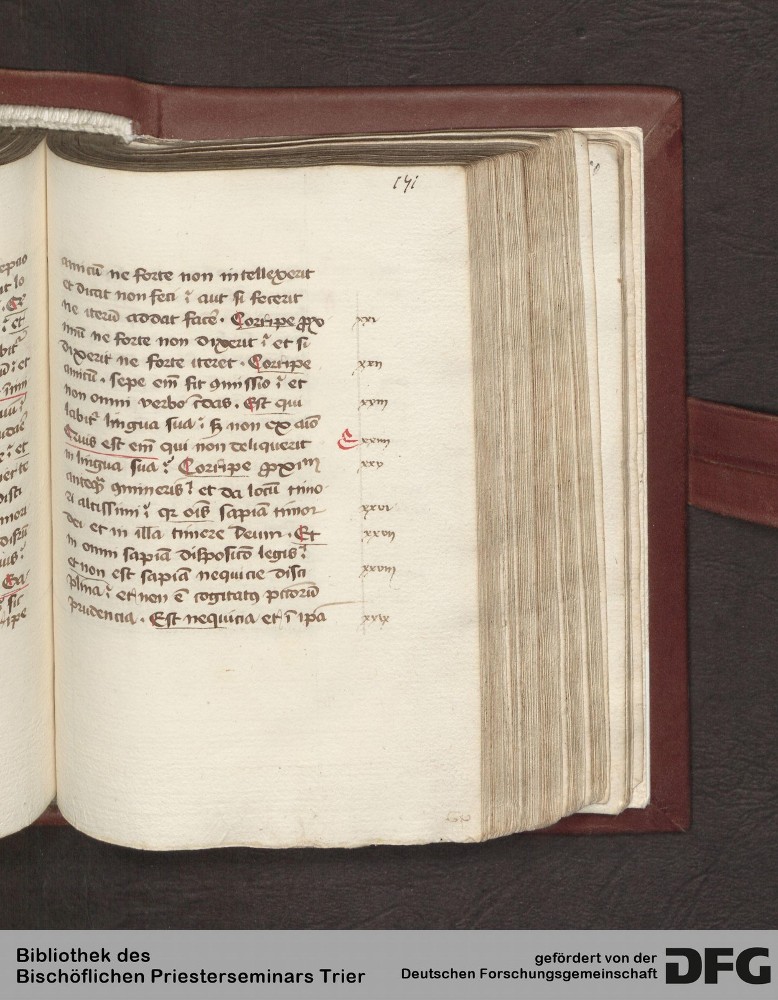 191
amicū ne forte non intellexerit
et dicat non feci ⁊ aut si fecerit
ne iterū addat facē · Corripe ꝓxı
mū ne forte non dixerit ⁊ et si
dixerit ne forte iteret · Corripe
amicū · sepe em̄ fit ꝯmissio ⁊ et
non omni verbo cdas · Est qui
labit᷑ lingua sua ⁊ sꝫ non ex aīo
Quis est em̄ qui non deliquerit
in lingua sua ⁊ Corripe ꝓximū
anteqꝫ ꝯmineris ⁊ et da locū timo
ri altissimi ⁊ qꝛ oīs sapīa timor
dei et in illa timere deum · Et
in omni sapīa disposicō legis ⁊
et non est sapīa nequicie disci
plina ⁊ et non ē cogitatꝰ pctorū
prudencia · Est nequicia et ī ipa
xxi
xxii
xxiii
xxiiii
xxv
xxvi
xxvii
xxviii
xxix
Bibliothek des
Bischöflichen Priesterseminars Trier
gefördert von der
Deutschen Forschungsgemeinschaft
DFG